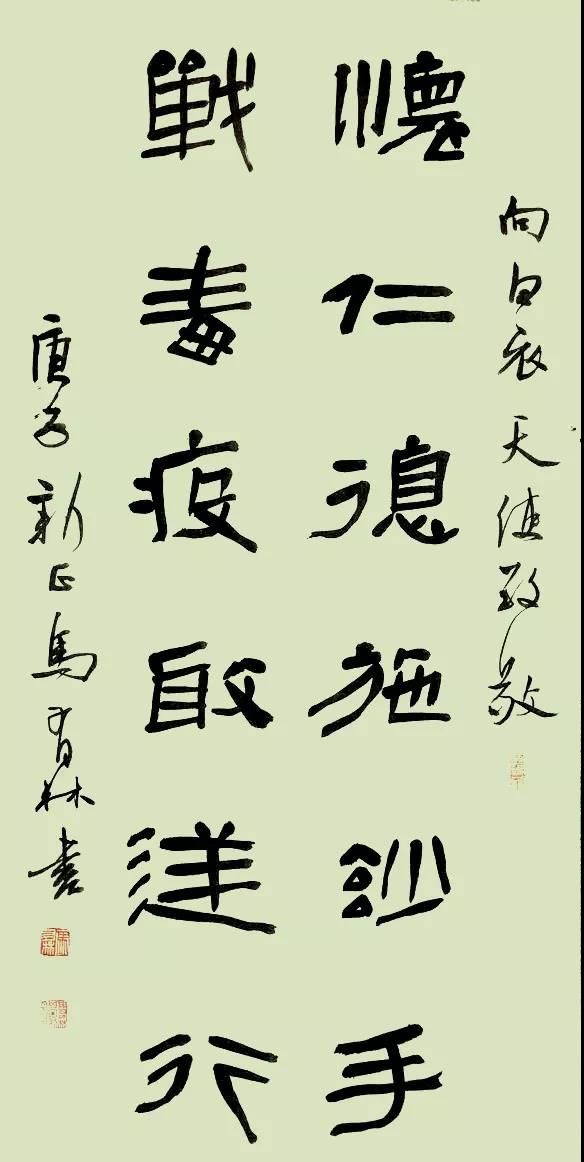 向白衣天使致敬
懷仁德施妙手
戰毒疫敢逆行
庚子新正馬有林書